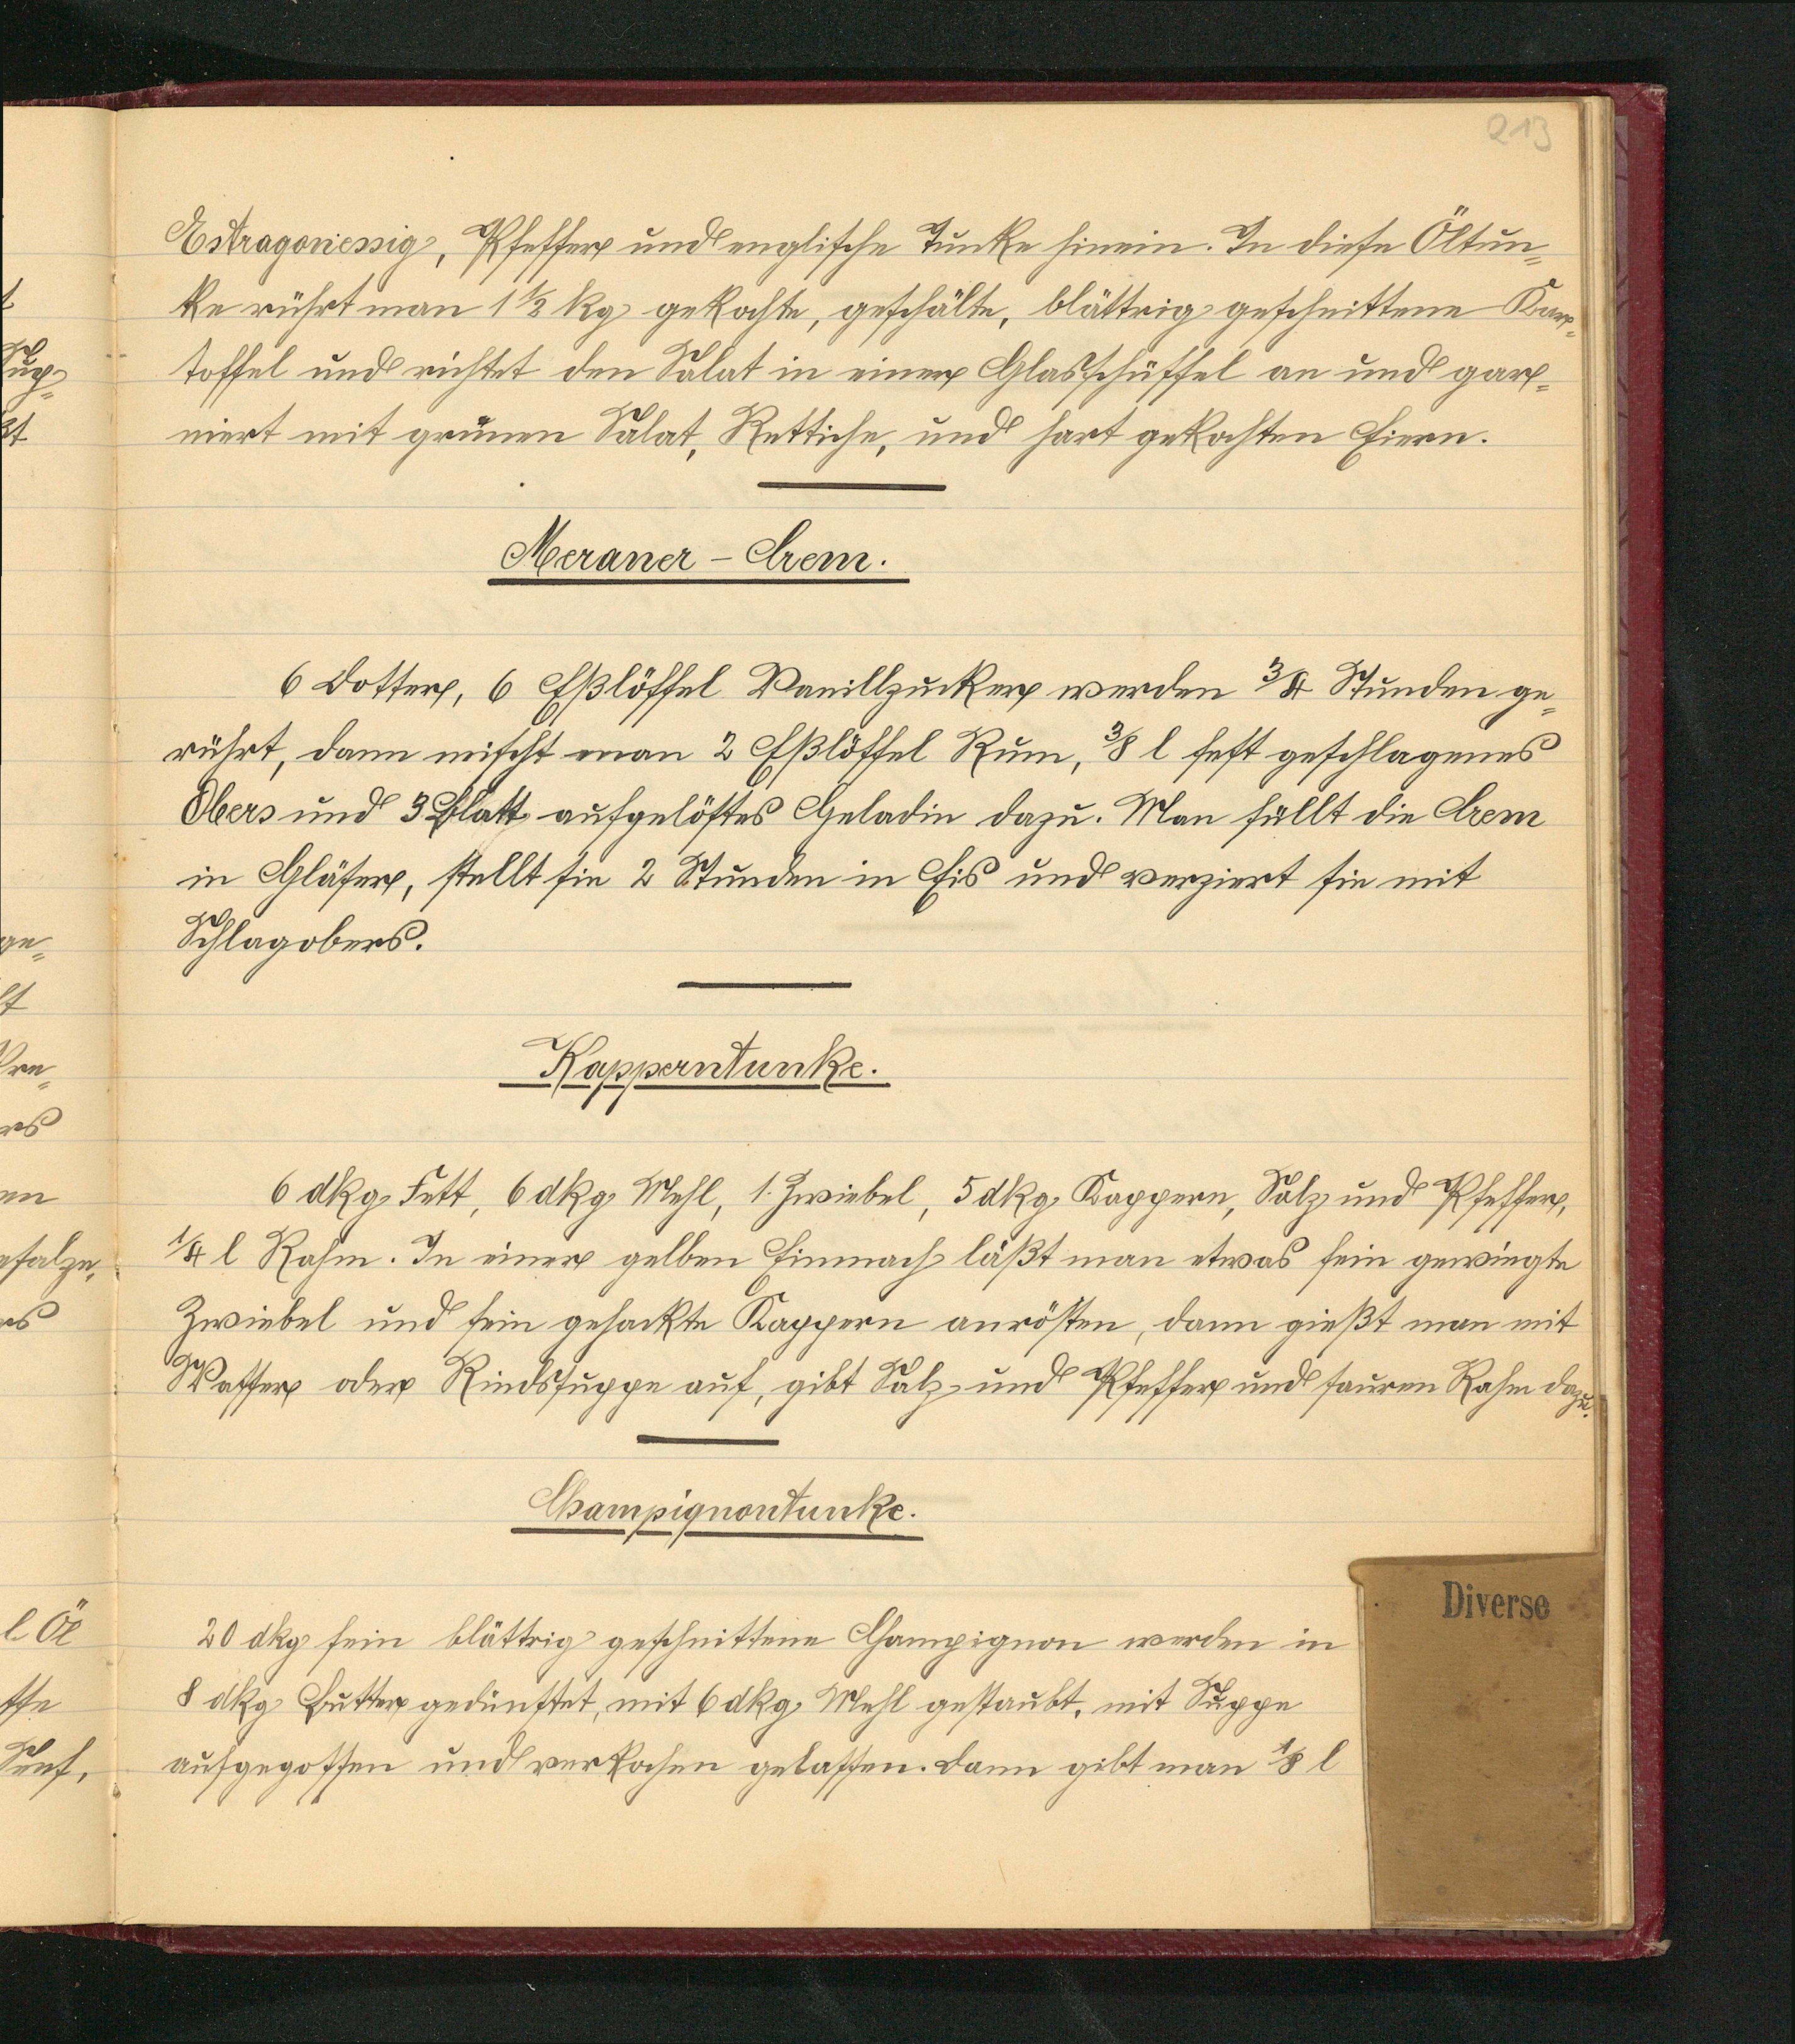 213
Estragonessig, Pfeffer und englische Tunke hinein. In diese Öltun-
ke rührt man 1 1/2 kg gekochte, geschälte, blättrig geschnittene Kar-
toffel und richtet den Salat in einer Glasschüssel an und gar-
niert mit grünen Salat, Rettiche, und hart gekochten Eiern.
Meraner - Crem.
6 Dotter, 6 Eßlöffel Vanillzucker werden 3/4 Stunden ge-
rührt, dann mischt man 2 Eßlöffel Rum, 3/8 l fest geschlagenes
Obers und 3 Blatt aufgelöstes Geladin dazu. Man füllt die Crem
in Gläser, stellt sie 2 Stunden in Eis und verziert sie mit
Schlagobers.
Kapperntunke.
6 dkg Fett, 6 dkg Mehl, 1 Zwiebel, 5 dkg Kappern, Salz und Pfeffer,
1/4 l Rahm. In einer gelben Einmach läßt man etwas fein gewiegte
Zwiebel und fein gehackte Kappern anrösten, dann gießt man mit
Wasser oder Rindssuppe auf, gibt Salz und Pfeffer und sauren Rahm dazu.
Champignontunke.
20 dkg fein blättrig geschnittene Champignon werden in
8 dkg Butter gedünstet, mit 6 dkg Mehl gestaubt, mit Suppe
aufgegossen und verkochen gelassen. Dann gibt man 1/8 l
Diverse